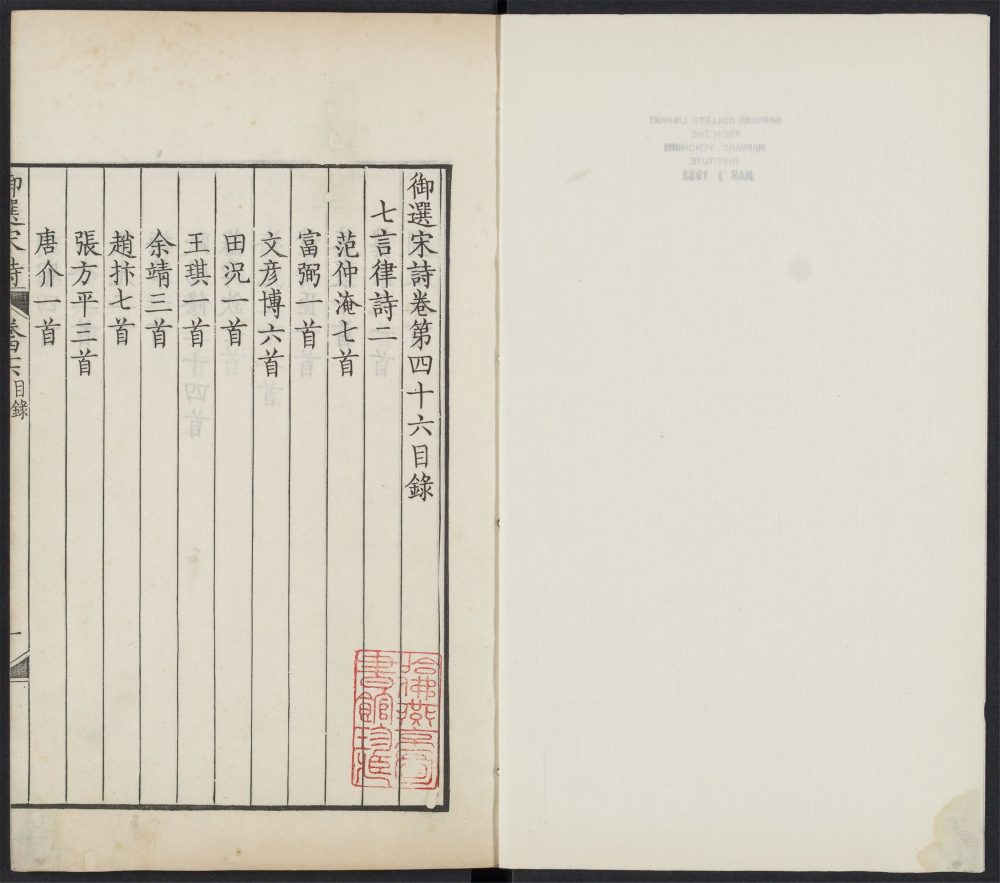 御選宋詩卷第四十六目錄
七言律詩二
范仲淹七首
富弼一首
文彥博六首
田况一首
王琪一首
余靖三首
趙抃七首
張方平三首
唐介一首
御選宋詩
卷四十六
目錄
一
哈佛燕京圖
書館珍藏
HARVARD COLLEGE LIBRARY
FROM THE
HARVARD-YENCHING
INSTITUTE